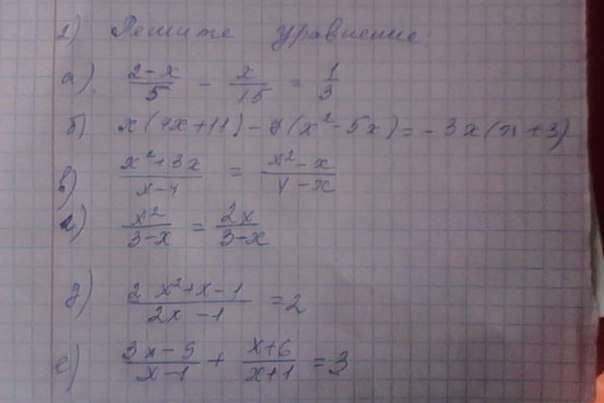 2) Решите уравнение:
а) (2-x)/5 - x/15 = 1/3
б) x(4x+11) - 7(x²-5x) = -3x(x+3)
в) (x²+3x)/(x-4) = (x²-x)/(4-x)
г) x²/(3-x) = 2x/(3-x)
д) (2x²+x-1)/(2x-1) = 2
е) (3x-5)/(x-1) + (x+6)/(x+1) = 3